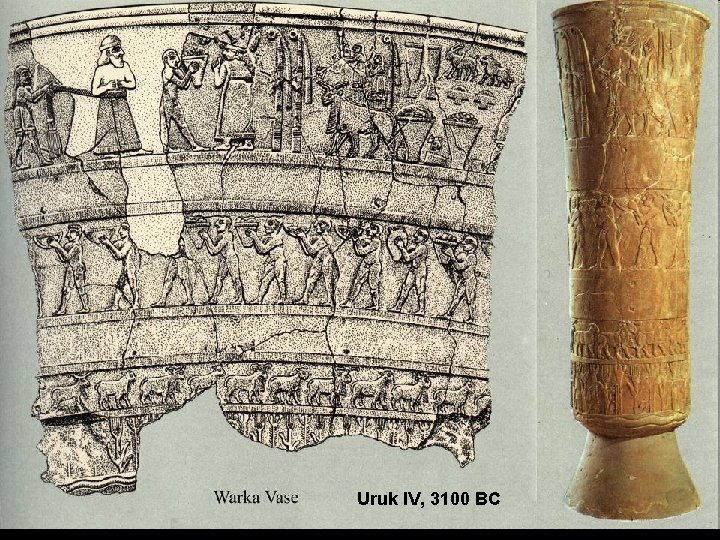 Warka Vase
Uruk IV, 3100 BC